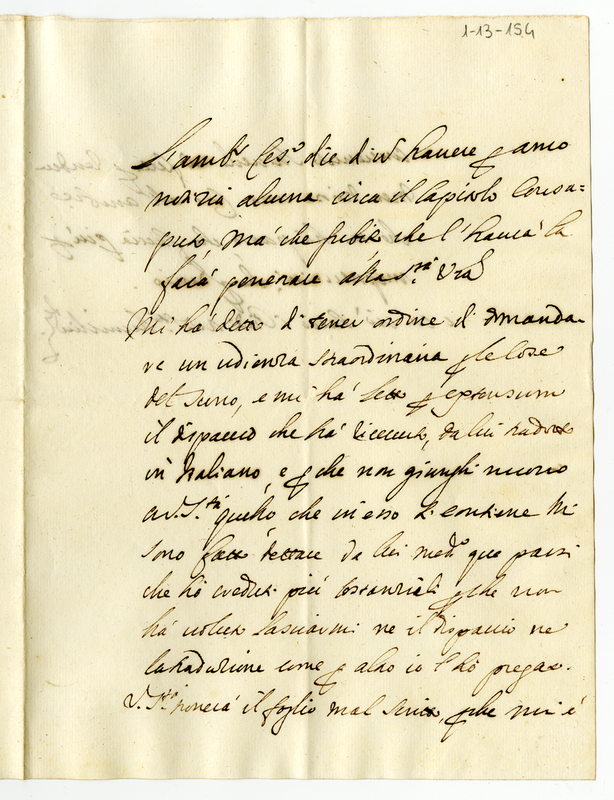 1-13-154
L'amb.r Ces.o dice di non havere p anco
notizia alcuna circa il Capitolo
ma che subito che l'haverà la
farà penetrare alla S.tà Vrã
Mi hà detto di tener ordine di domanda-
re un udienza straordinaria p le cose
del Turno, e mi hà letto p extensum
il dispaccio che hà ricevuto, da lui tradotto
in Italiano, e p che non giunghi nuovo
a V. S.tà quello, che in esso si contiene mi
sono fatto dettare da lui med.o que passi
che hò creduti più sostanziali p che non
hà voluto lasciarmi ne il dispaccio ne
la traduzione come p altro io l'hò pregato.
V. S.tà il foglio mal scritto, p che mi è